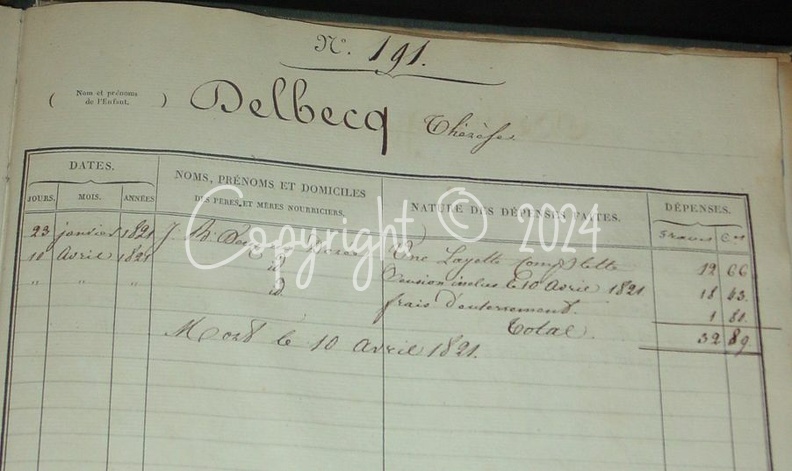 N.° 191.
( Nom et prénoms de l'Enfant. ) Delbecq Thérèse
DATES. NOMS, PRÉNOMS ET DOMICILES DES PERES ET MÈRES NOURRICIERS. NATURE DES DÉPENSES FAITES. DÉPENSES.
JOURS. MOIS. ANNÉES francs Cms
23 janvier 1821 J. B. Une Layette Complette 12 66
10 Avril 1821 id. Pension inclus le 10 Avril 1821 18 43.
" " " id. frais d'enterrement. 1 81.
Total. 32 89
Mort le 10 Avril 1821.
Copyright © 2024